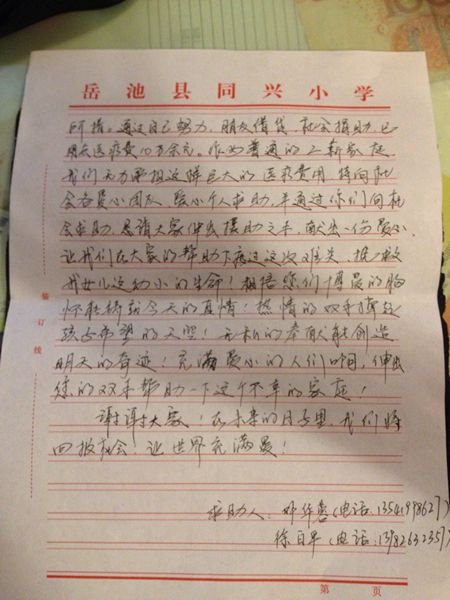 岳池县同兴小学
所措。通过自己努力，朋友借贷，社会捐助，已
用去医疗费10万余元。作为普通的工薪家庭
我们无力承担这降巨大的医疗费用，特向社
会各爱心团队、爱心个人求助，并通过你们向社
会求助，恳请大家伸出援助之手，献出一份爱心
让我们在大家的帮助下度过这次难关，拯救
我女儿这幼小的生命！相信您们博爱的胸
怀能桥就今天的真情！热情的双手撑起
孩子希望的天空！无私的奉献能创造
明天的奇迹！充满爱心的人们啊，伸出
您的双手帮助一下这个不幸的家庭！
谢谢大家！在未来的日子里，我们将
回报社会！让世界充满爱！
求助人：华蓉（电话：13541998627）
徐（电话：13982632357）
装订线
第 页